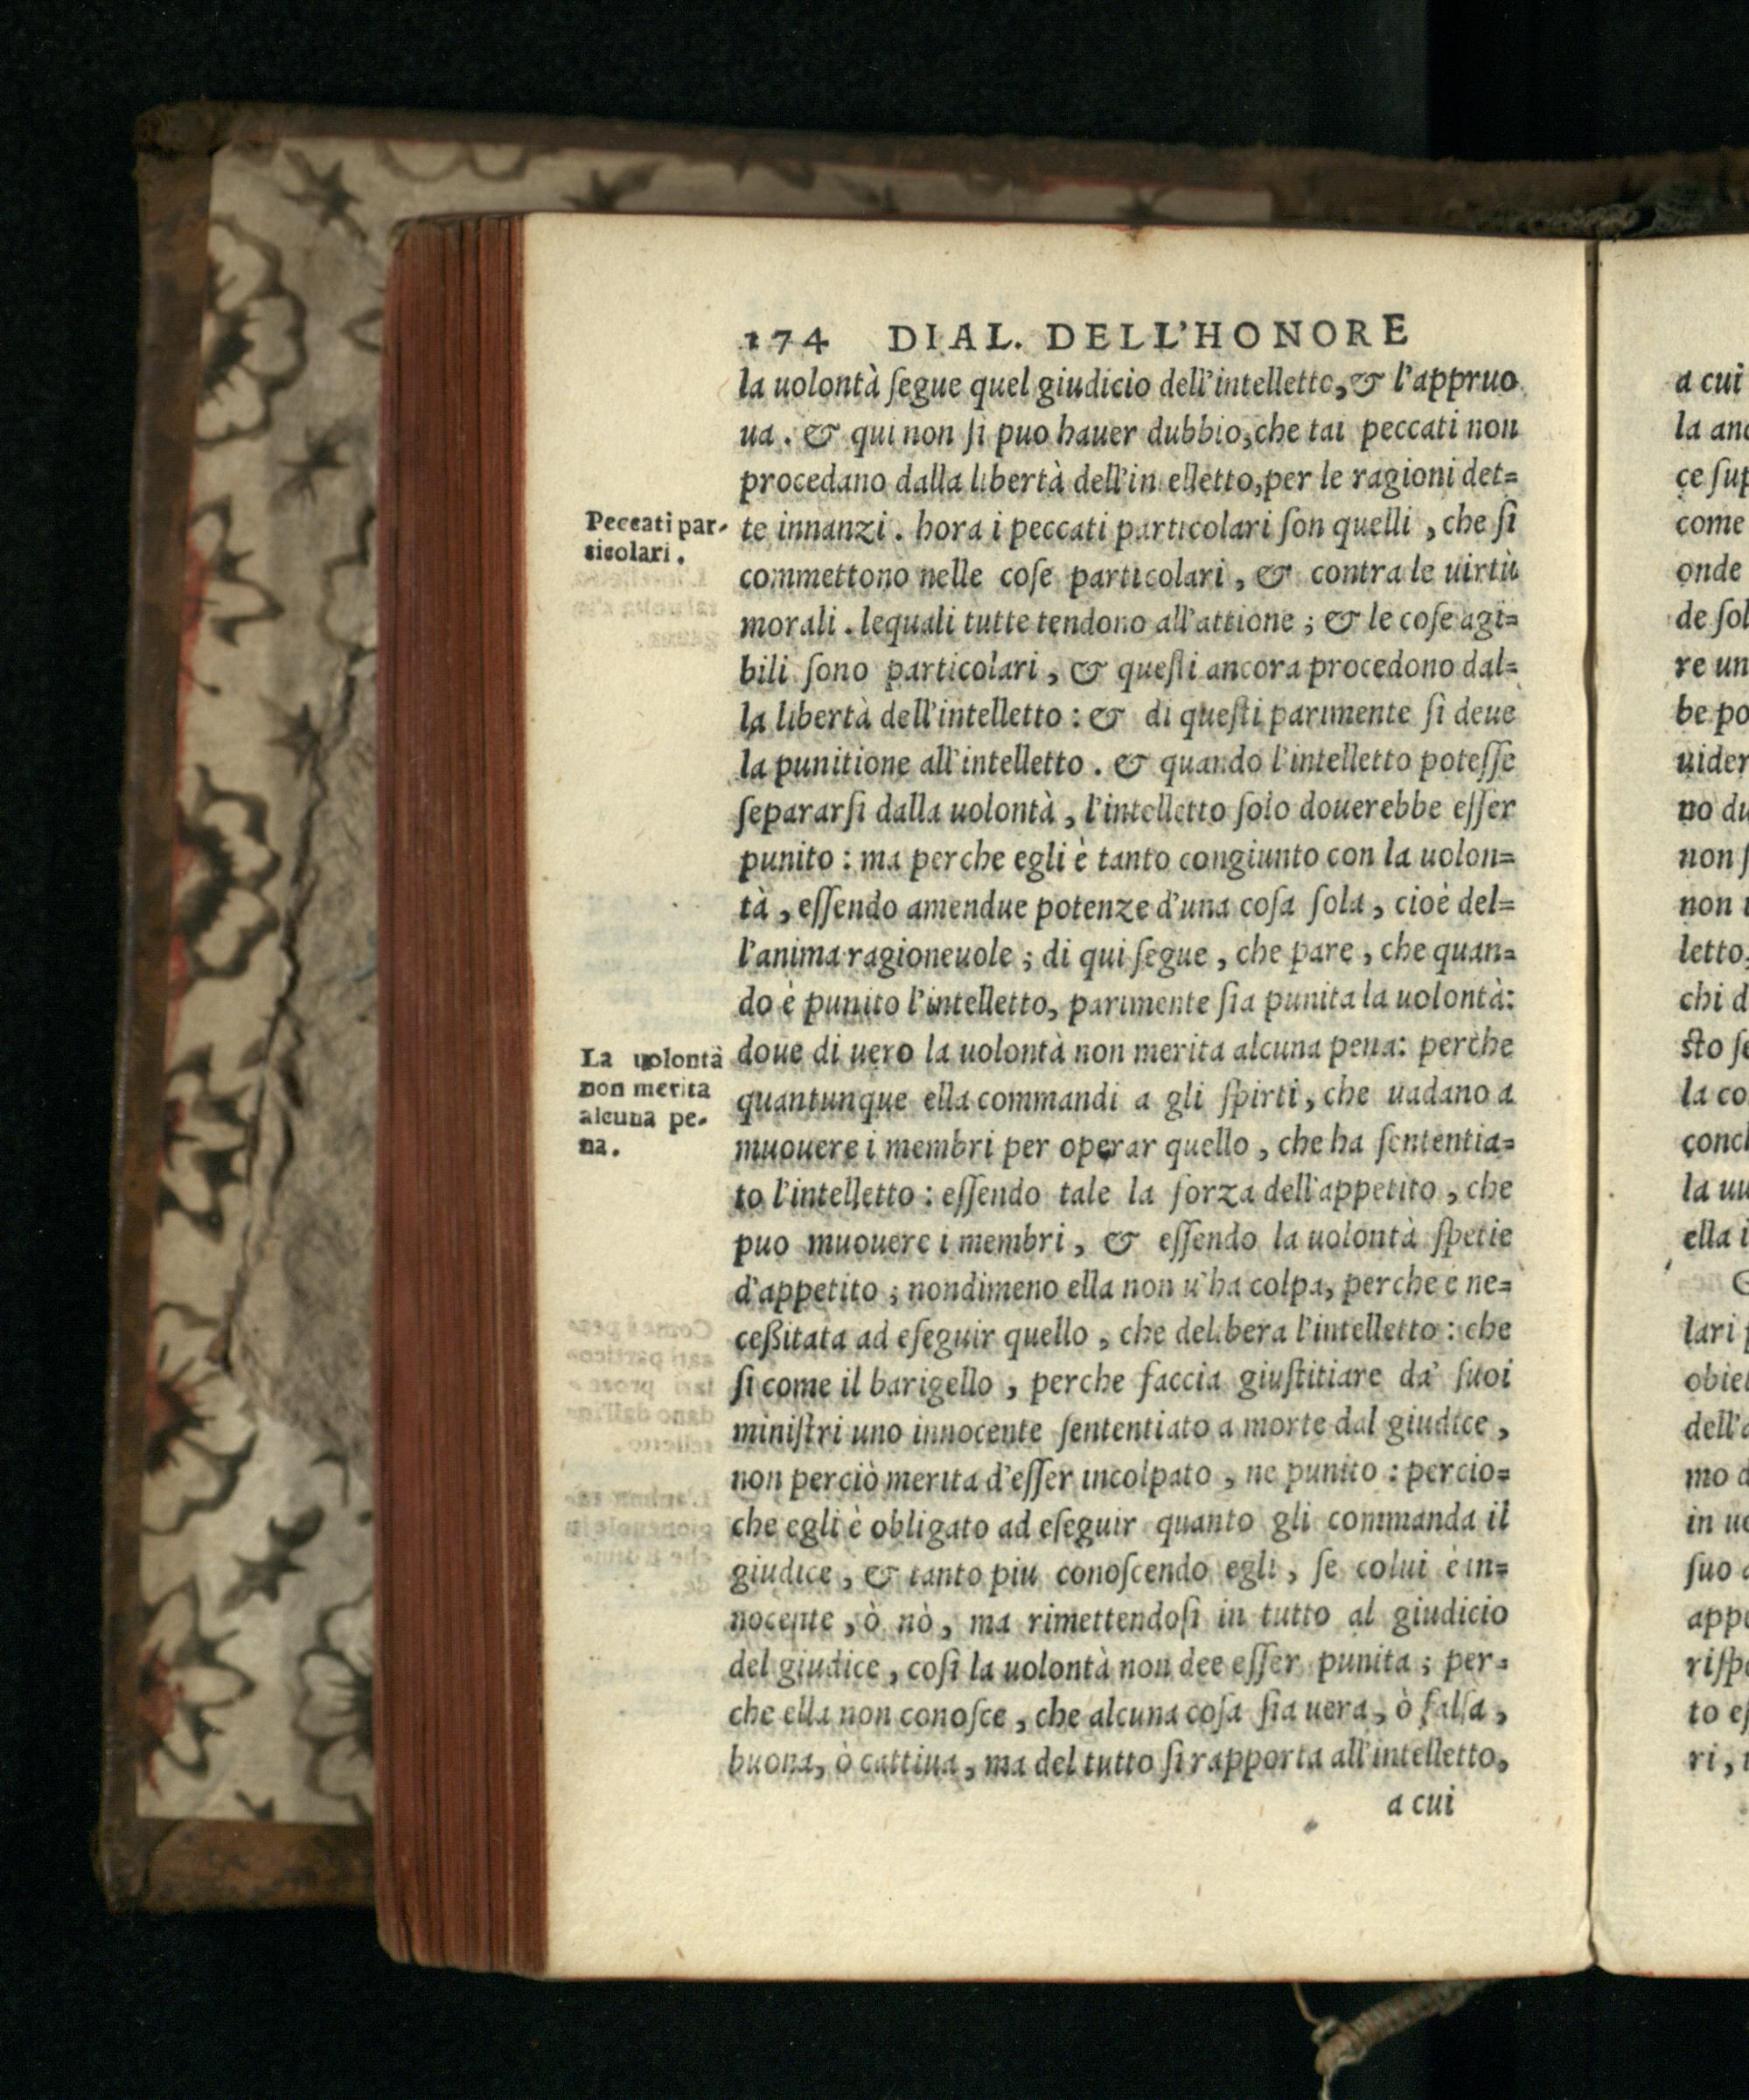 174 DIAL. DELL'HONORE
la uolontà ſegue quel giudicio dell'intelletto, & l'appruo
ua. & qui non ſi puo hauer dubbio, che tai peccati non
procedano dalla libertà dell'in elletto, per le ragioni det=
Peccati par-
ticolari.
te innanzi. hora i peccati particolari ſon quelli, che ſi
commettono nelle coſe particolari, & contra le uirtù
morali. lequali tutte tendono all'attione; & le coſe agi=
bili ſono particolari, & queſti ancora procedono dal=
la libertà dell'intelletto: & di queſti parimente ſi deue
la punitione all'intelletto. & quando l'intelletto poteſſe
ſepararſi dalla uolontà, l'intelletto ſolo douerebbe eſſer
punito: ma perche egli è tanto congiunto con la uolon=
tà, eſſendo amendue potenze d'una coſa ſola, cioè del=
l'anima ragioneuole; di qui ſegue, che pare, che quan=
do è punito l'intelletto, parimente ſia punita la uolontà:
La uolontà
non merita
alcuna pe-
na.
doue di uero la uolontà non merita alcuna pena: perche
quantunque ella commandi a gli ſpirti, che uadano a
muouere i membri per operar quello, che ha ſententia=
to l'intelletto: eſſendo tale la forza dell'appetito, che
puo muouere i membri, & eſſendo la uolontà ſpetie
d'appetito; nondimeno ella non u'ha colpa, perche è ne=
ceßitata ad eſeguir quello, che delibera l'intelletto: che
ſi come il barigello, perche faccia giuſtitiare da' ſuoi
miniſtri uno innocente ſententiato a morte dal giudice,
non perciò merita d'eſſer incolpato, ne punito: percio=
che egli è obligato ad eſeguir quanto gli commanda il
giudice, & tanto piu conoſcendo egli, ſe colui è in=
nocente, ò nò, ma rimettendoſi in tutto al giudicio
del giudice, coſi la uolontà non dee eſſer punita; per=
che ella non conoſce, che alcuna coſa ſia uera, ò falſa,
buona, ò cattiua, ma del tutto ſi rapporta all'intelletto,
a cui
a cui
la anc
ce ſup
come
onde
de ſol
re un
be po
uider
no du
non ſ
non
letto,
chi d
ſto ſe
la co
concl
la uu
ella i
lari p
obiet
dell'a
mo d
in ue
ſuo a
appe
riſpe
to eſ
ri,